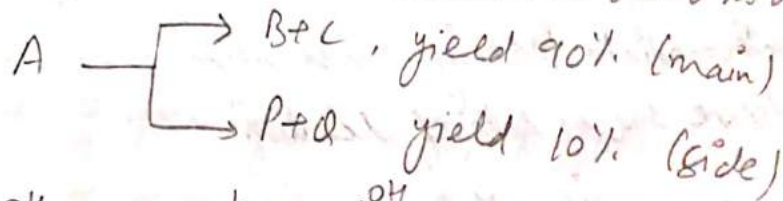 B+C, yield 90%. (main)
A
P+Q yield 10%. (side)
OH